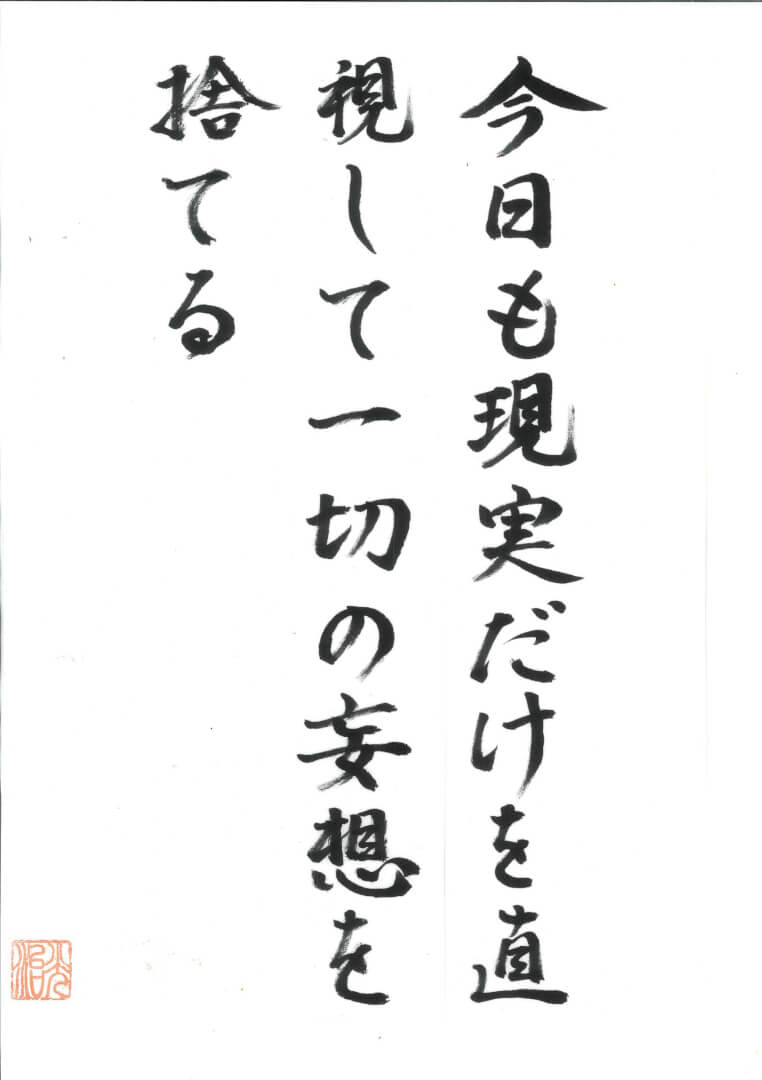 今日も現実だけを直
視して一切の妄想を
捨てる